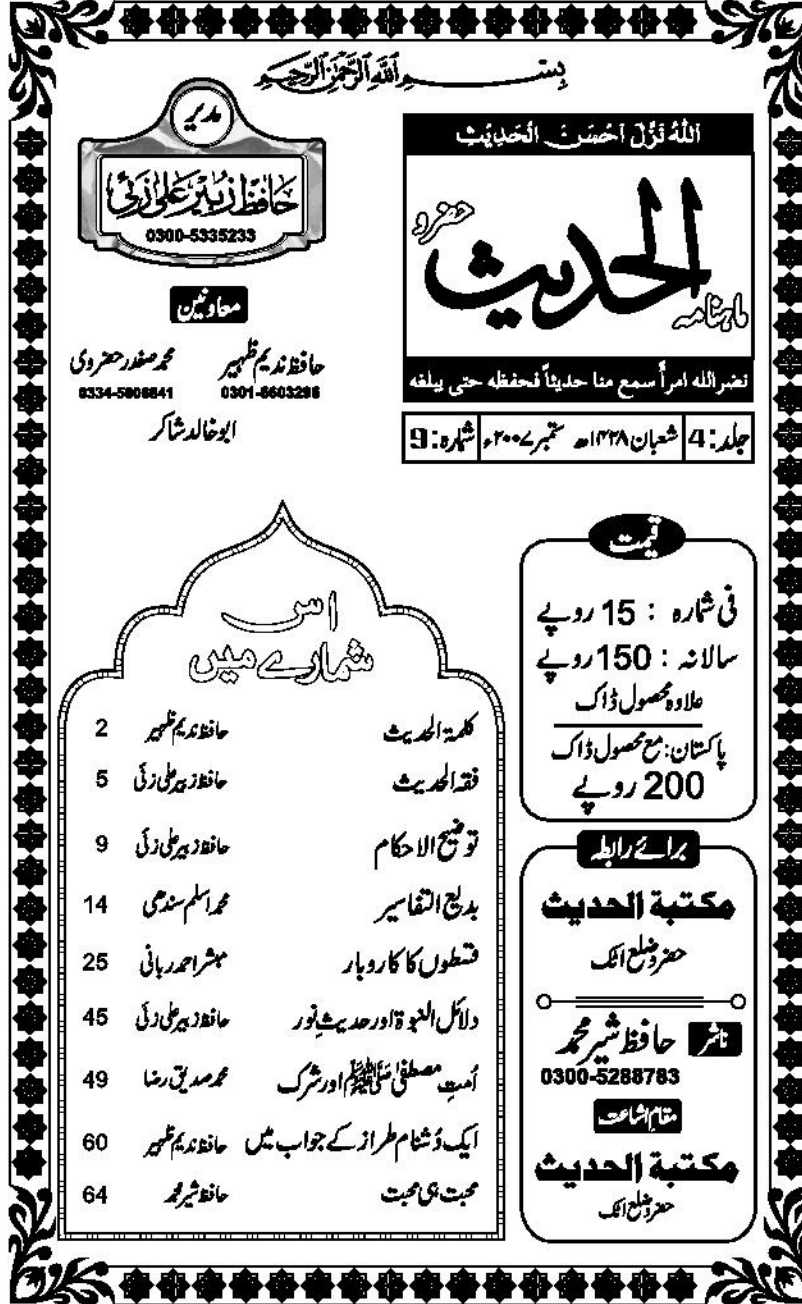 بِسْمِ اللّٰهِ الرَّحْمٰنِ الرَّحِيْمِ
اَللّٰهُ نَزَّلَ اَحْسَنَ الْحَدِيْثِ
ماہنامہ الحدیث حضرو
نضر الله امرأً سمع منا حديثاً فحفظه حتى يبلغه
جلد: 4 شعبان ۱۴۲۸ھ ستمبر ۲۰۰۷ء شمارہ: 9
مدیر
حافظ زبیر علی زئی
0300-5335233
معاونین
حافظ ندیم ظہیر محمد صفدر حضروی
0301-6603296 0334-5906841
ابو خالد شاکر
قیمت
فی شمارہ : 15 روپے
سالانہ : 150 روپے
علاوہ محصول ڈاک
پاکستان: مع محصول ڈاک
200 روپے
برائے رابطہ
مكتبة الحديث
حضرو ضلع اٹک
ناشر حافظ شیر محمد
0300-5288783
مقام اشاعت
مكتبة الحديث
حضرو ضلع اٹک
اس
شمارے میں
کلمۃ الحدیث حافظ ندیم ظہیر 2
فقہ الحدیث حافظ زبیر علی زئی 5
توضیح الاحکام حافظ زبیر علی زئی 9
بدیع التفاسیر محمد اسلم سندھی 14
قسطوں کا کاروبار مبشر احمد ربانی 25
دلائل النبوۃ اور حدیثِ نور حافظ زبیر علی زئی 45
اُمتِ مصطفیٰ ﷺ اور شرک محمد صدیق رضا 49
ایک دُشنام طراز کے جواب میں حافظ ندیم ظہیر 60
محبت ہی محبت حافظ شیر محمد 64